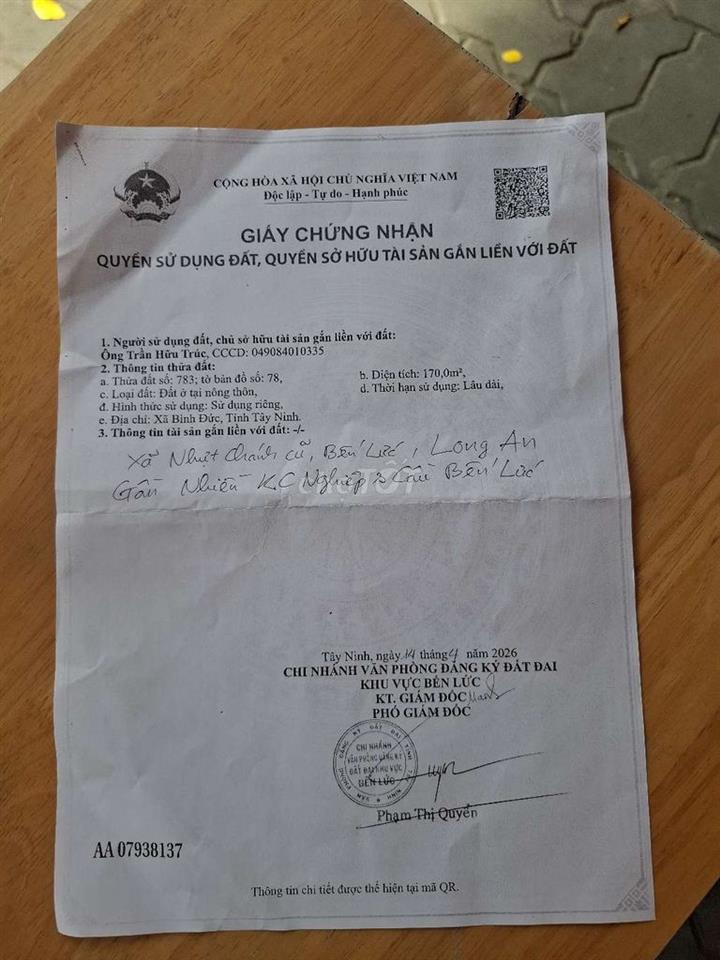 CỘNG HÒA XÃ HỘI CHỦ NGHĨA VIỆT NAM
Độc lập - Tự do - Hạnh phúc
GIẤY CHỨNG NHẬN
QUYỀN SỬ DỤNG ĐẤT, QUYỀN SỞ HỮU TÀI SẢN GẮN LIỀN VỚI ĐẤT
1. Người sử dụng đất, chủ sở hữu tài sản gắn liền với đất:
Ông Trần Hữu Trúc, CCCD: 049084010335
2. Thông tin thửa đất:
a. Thửa đất số: 783; tờ bản đồ số: 78,
b. Diện tích: 170,0m²,
c. Loại đất: Đất ở tại nông thôn,
d. Thời hạn sử dụng: Lâu dài,
đ. Hình thức sử dụng: Sử dụng riêng,
e. Địa chỉ: Xã Bình Đức, Tỉnh Tây Ninh.
3. Thông tin tài sản gắn liền với đất: -/-
Xã Nhựt Chánh cũ, Bến Lức, Long An
Gần Nhiều KC Nghiệp & Cầu Bến Lức
CHỢ TỐT
Tây Ninh, ngày 14 tháng 4 năm 2026
CHI NHÁNH VĂN PHÒNG ĐĂNG KÝ ĐẤT ĐAI
KHU VỰC BẾN LỨC
KT. GIÁM ĐỐC
PHÓ GIÁM ĐỐC
CHI NHÁNH
VĂN PHÒNG ĐĂNG KÝ
ĐẤT ĐAI KHU VỰC
BẾN LỨC
Phạm Thị Quyền
AA 07938137
Thông tin chi tiết được thể hiện tại mã QR.